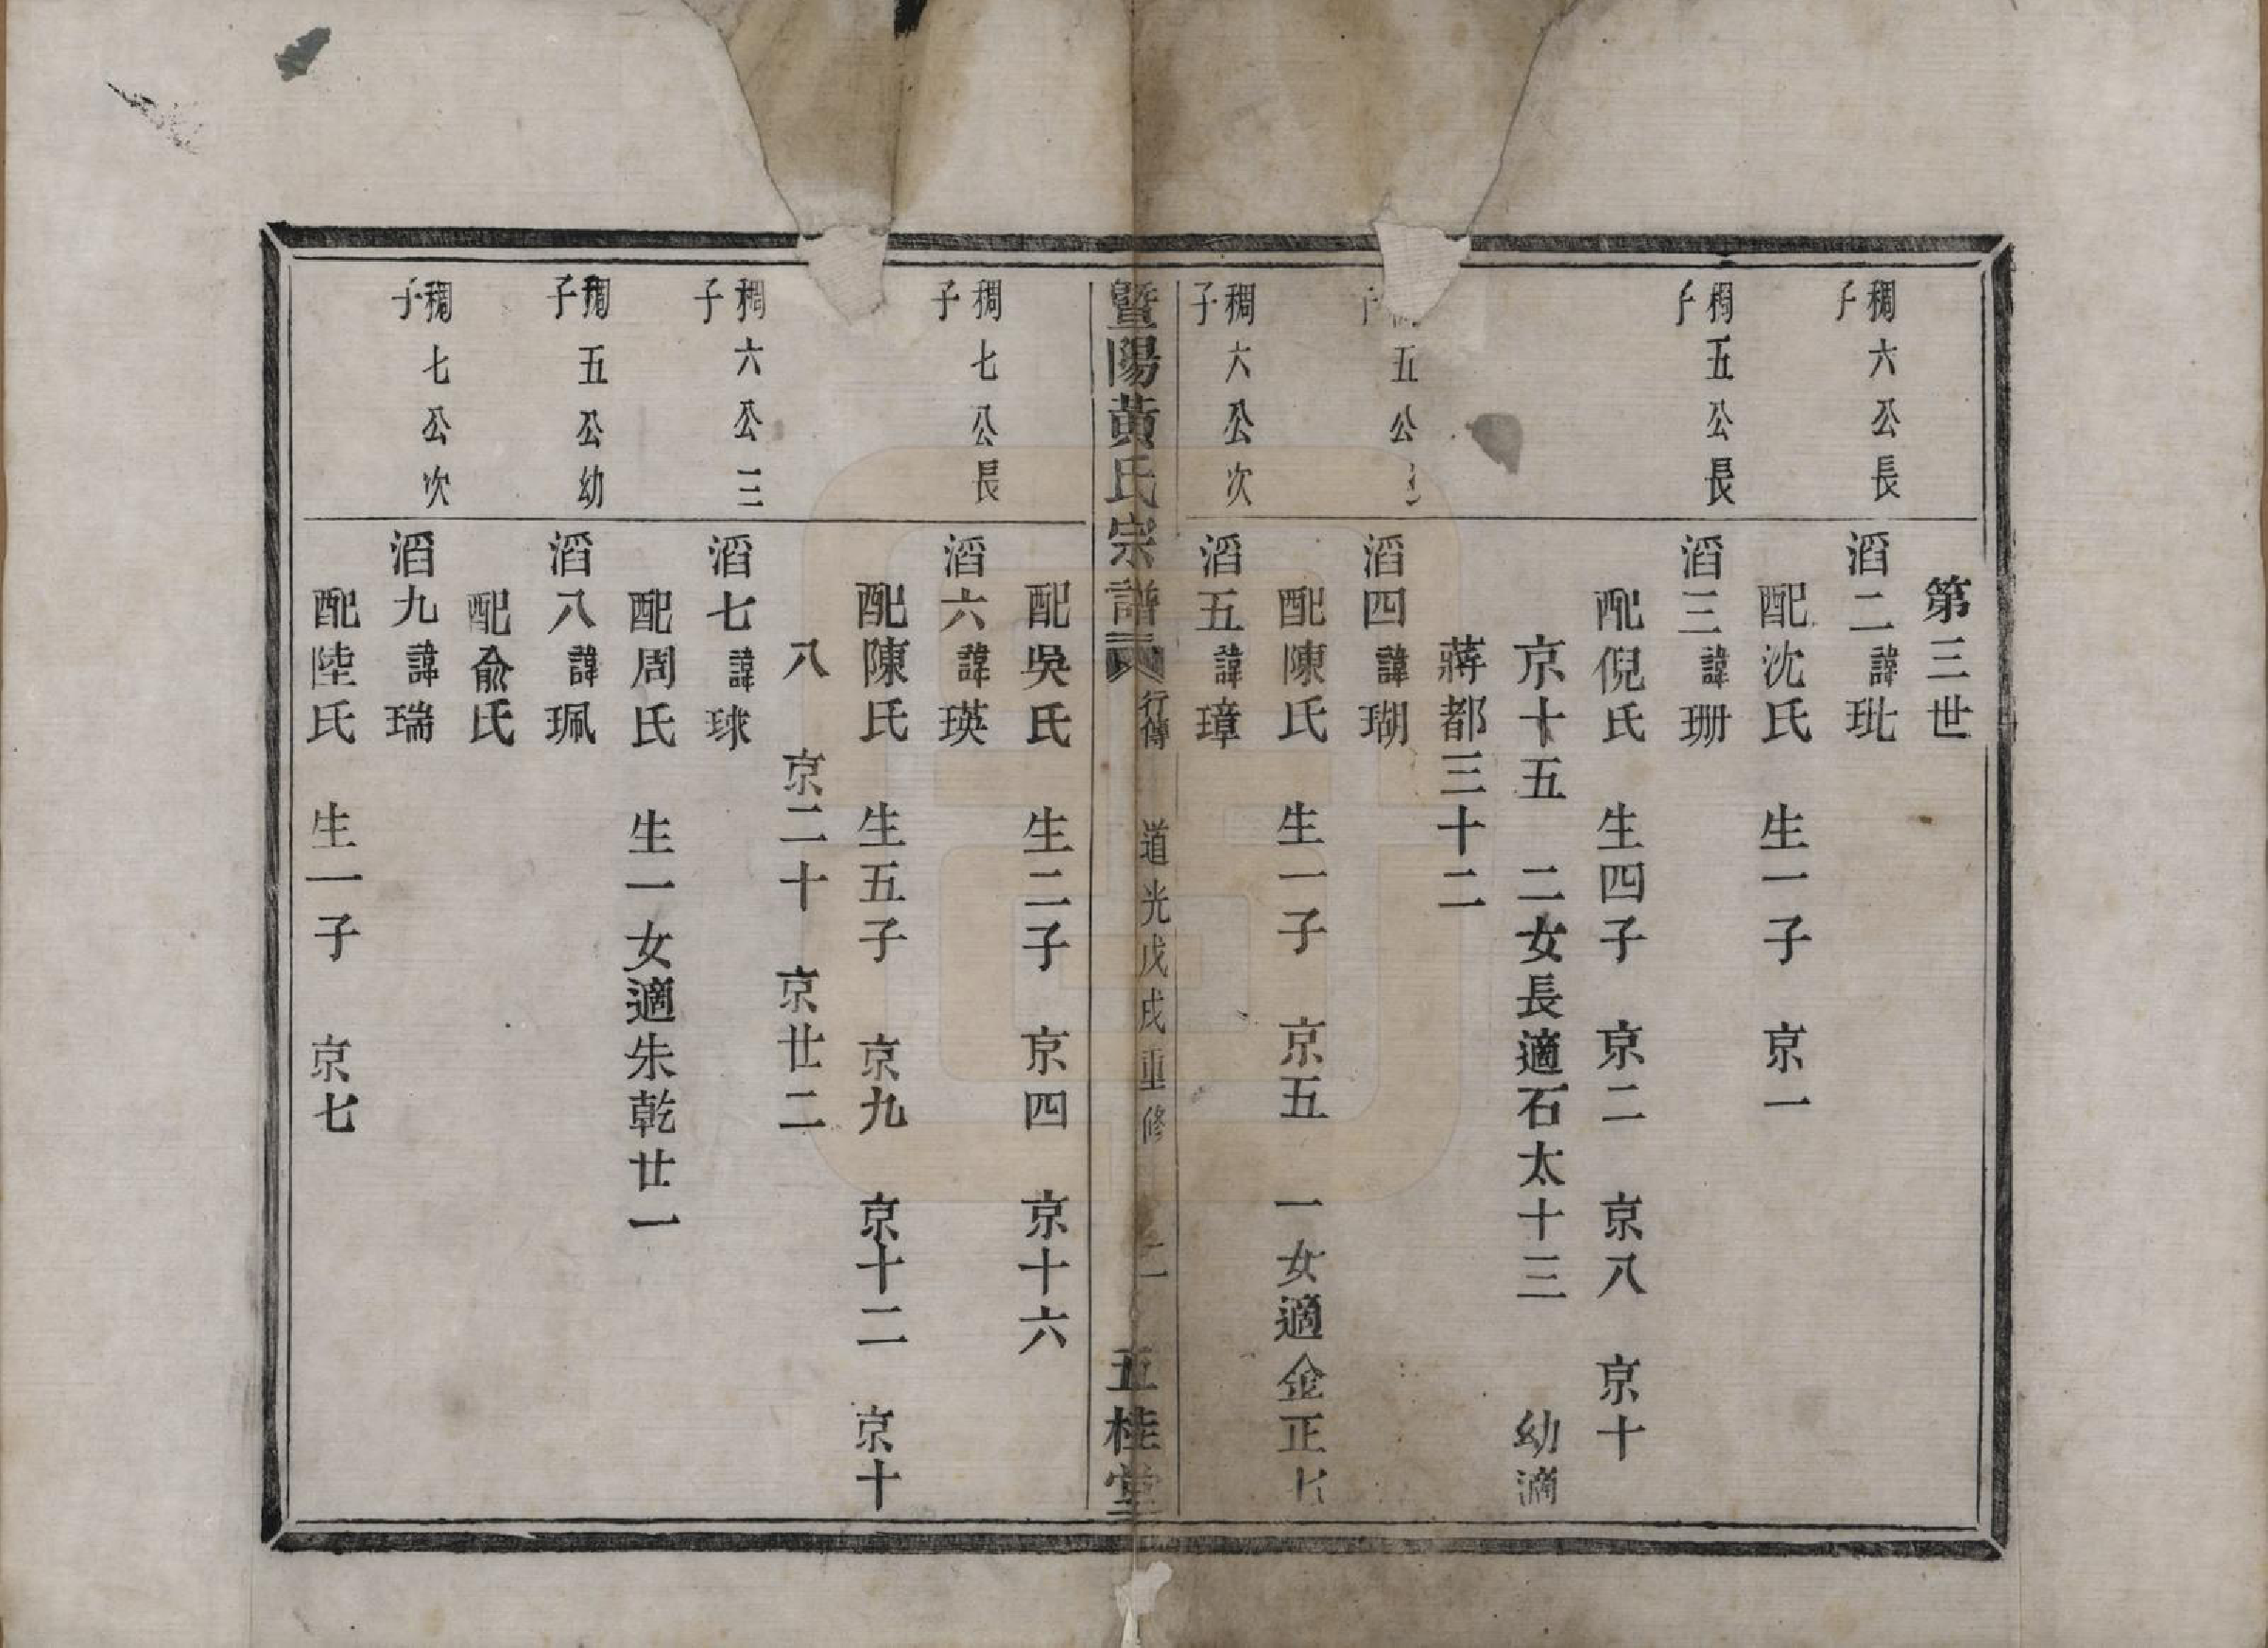 第三世
稠六公長
子
滔二諱玭
配沈氏　生一子　京一
稠五公長
子
滔三諱珊
配倪氏　生四子　京二　京八　京十
京十五　二女長適石太十三　幼適
蔣都三十二
五公
子
滔四諱瑚
配陳氏　生一子　京五　一女適金正七
稠六公次
子
滔五諱璋
暨陽黃氏宗譜
行傳
道光戊戌重修
二
五桂堂
配吳氏　生二子　京四　京十六
稠七公長
子
滔六諱瑛
配陳氏　生五子　京九　京十二　京十
八　京二十　京廿二
稠六公三
子
滔七諱球
配周氏　生一女適朱乾廿一
稠五公幼
子
滔八諱珮
配俞氏
稠七公次
子
滔九諱瑞
配陸氏　生一子　京七